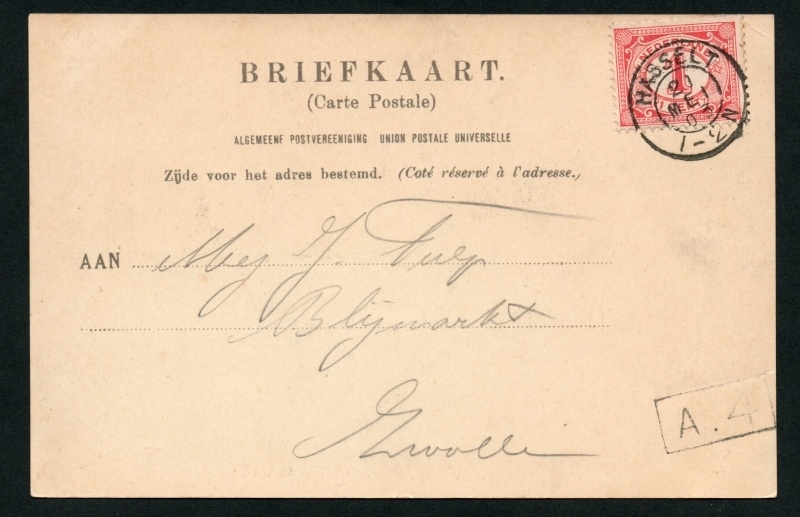 BRIEFKAART.
(Carte Postale)
ALGEMEENE POSTVEREENIGING UNION POSTALE UNIVERSELLE
Zijde voor het adres bestemd. (Coté réservé à l'adresse.)
NEDERLAND
1
HASSELT
20
MEI
1-2N
AAN Mej J. Tulp
Blijmarkt
Zwolle
A. 4